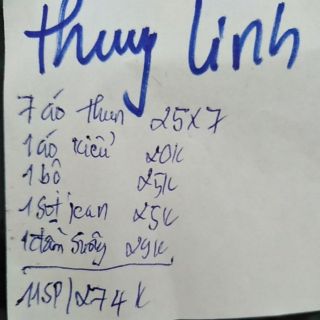 thuy linh
7 áo thun 25x7
1 áo kiểu 20K
1 bộ 25K
1 sọt jean 25K
1 đầm suông 29K
11SP/274K